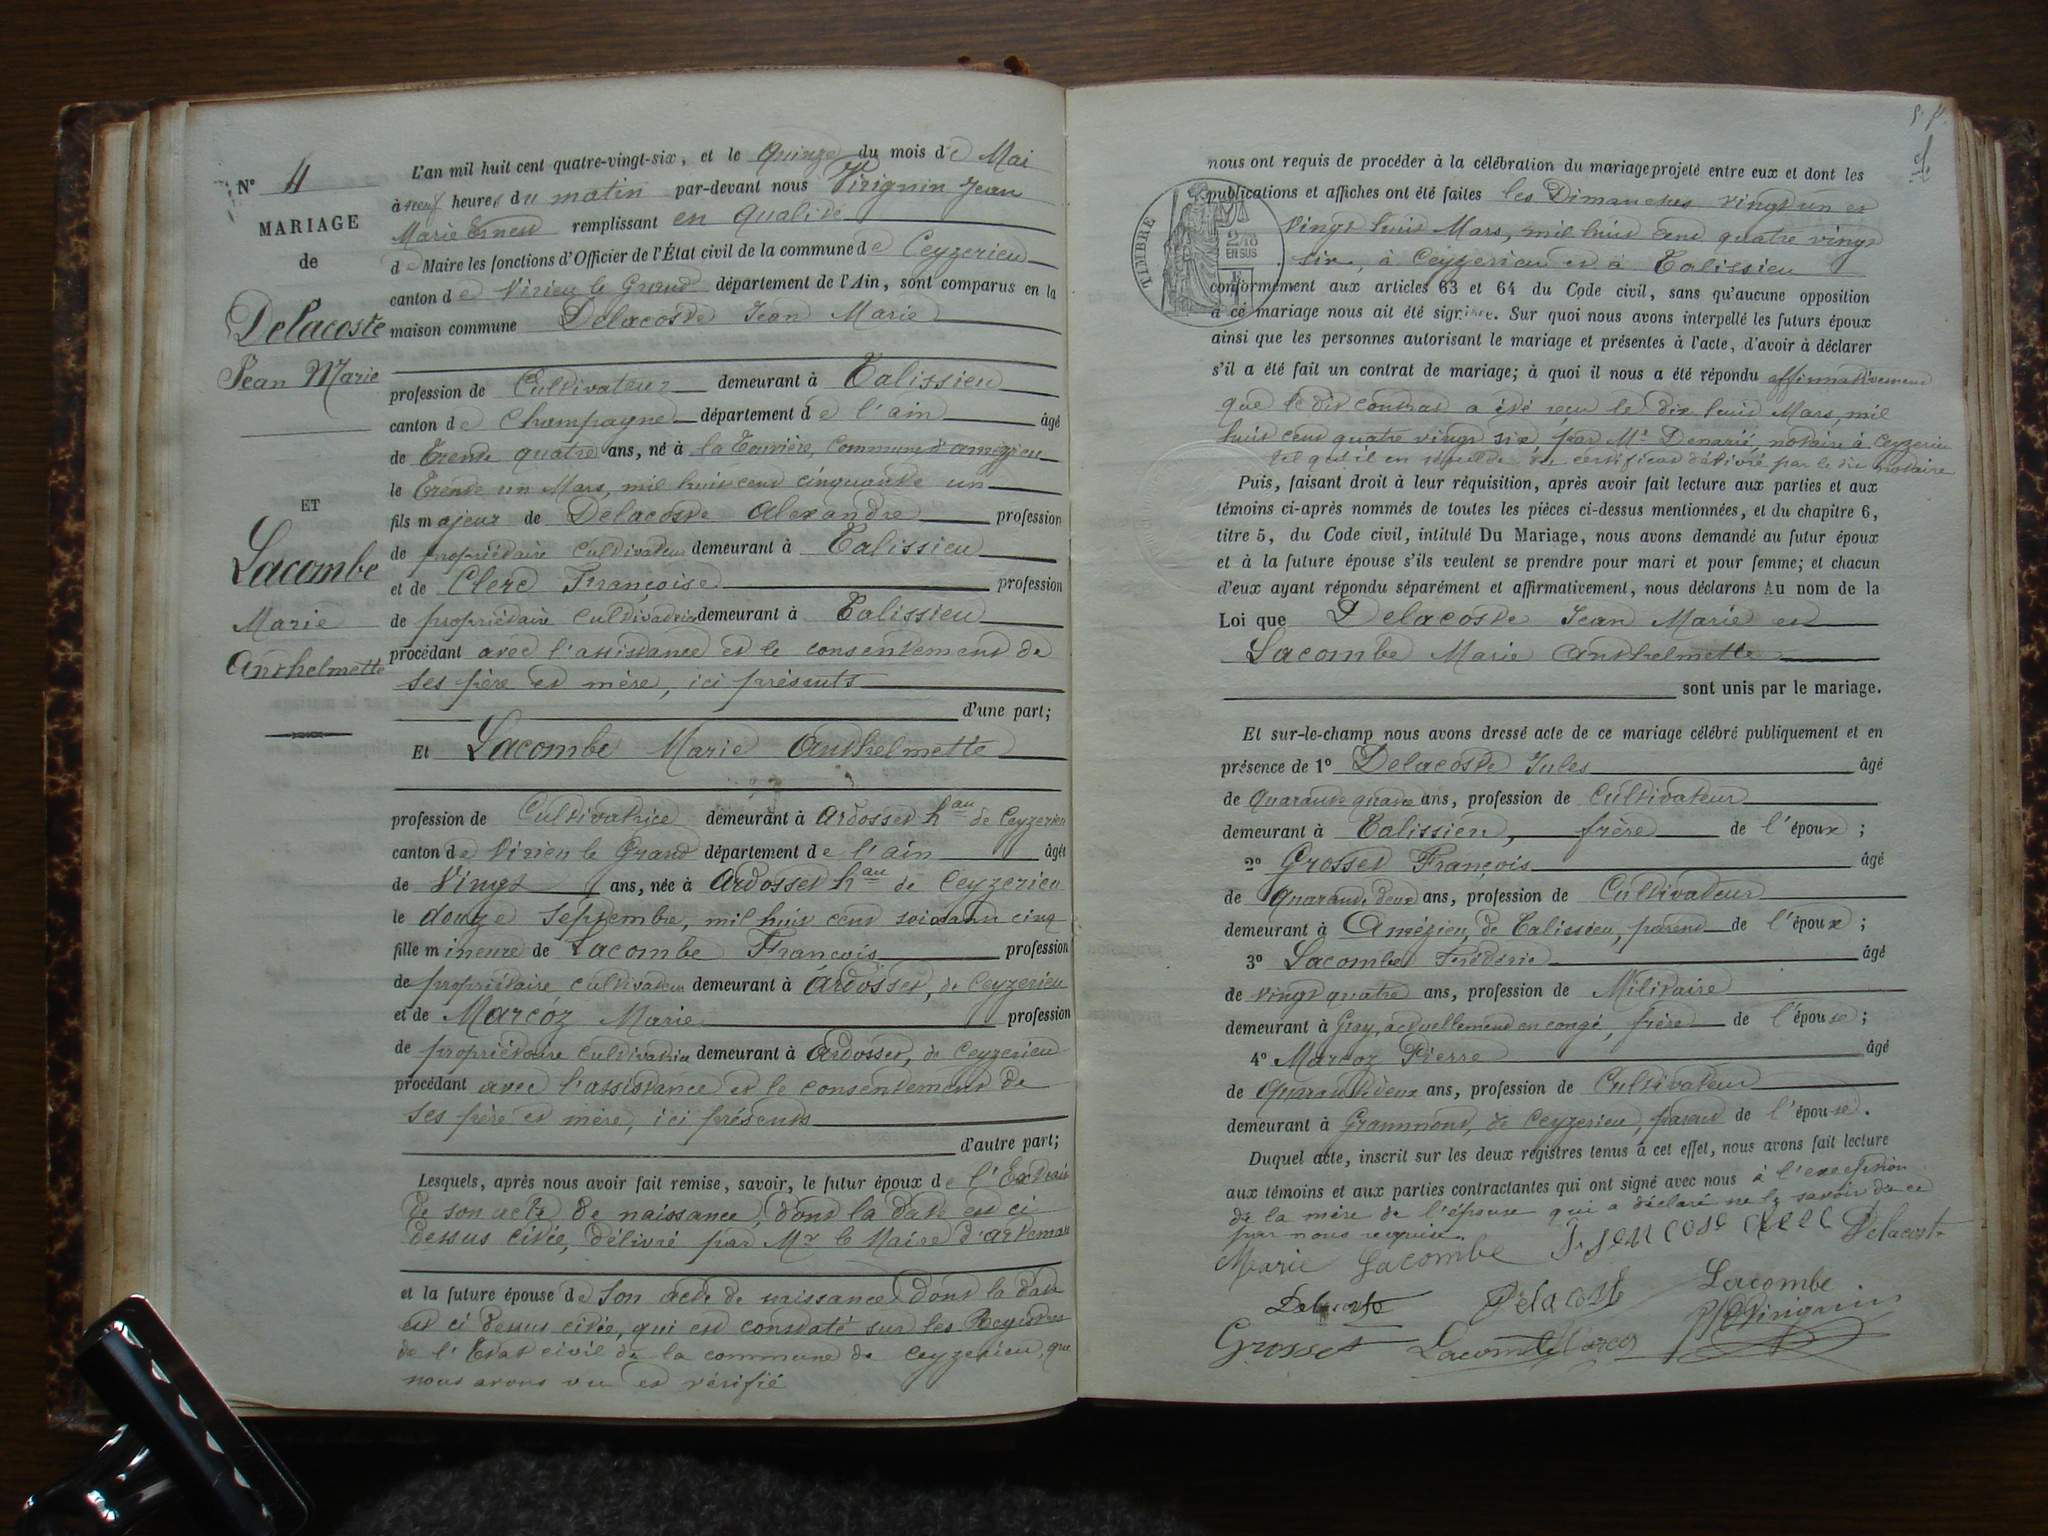 N° 4
MARIAGE
de
Delacoste
Jean Marie
ET
Lacombe
Marie
Anthelmette
L'an mil huit cent quatre-vingt-six, et le quinze du mois de Mai
à neuf heures du matin par-devant nous Virignin Jean
Marie Ernest remplissant en qualité
de Maire les fonctions d'Officier de l'État civil de la commune de Ceyzerieu
canton de Virieu le Grand département de l'Ain, sont comparus en la
maison commune Delacoste Jean Marie
profession de Cultivateur demeurant à Talissieu
canton de Champagne département de l'ain âgé
de trente quatre ans, né à la Tourière, Commune d'amézieu
le trente un Mars, mil huit cent cinquante un
fils majeur de Delacoste Alexandre profession
de propriétaire Cultivateur demeurant à Talissieu
et de Clerc Françoise profession
de propriétaire Cultivatrice demeurant à Talissieu
procédant avec l'assistance et le consentement de
ses père et mère, ici présents
d'une part;
Et Lacombe Marie Anthelmette
profession de Cultivatrice demeurant à Ardosset hau de Ceyzerieu
canton de Virieu le Grand département de l'ain âgée
de Vingt ans, née à Ardosset hau de Ceyzerieu
le douze Septembre, mil huit cent soixante cinq
fille mineure de Lacombe François profession
de propriétaire cultivateur demeurant à Ardosset, de Ceyzerieu
et de Marcoz Marie profession
de propriétaire cultivatrice demeurant à Ardosset, de Ceyzerieu
procédant avec l'assistance et le consentement de
ses père et mère, ici présents
d'autre part;
Lesquels, après nous avoir fait remise, savoir, le futur époux de l'Extrait
de son acte de naissance, dont la date est ci
dessus citée, délivré par Mr le Maire d'Artemare
et la future épouse de son acte de naissance dont la date
est ci dessus citée, qui est constaté sur les Registres
de l'Etat civil de la commune de Ceyzerieu, que
nous avons vu et vérifié
nous ont requis de procéder à la célébration du mariage projeté entre eux et dont les
publications et affiches ont été faites les Dimanches vingt un et
Vingt huit Mars, mil huit cent quatre vingt
six, à Ceyzerieu et à Talissieu
TIMBRE
2/10
EN SUS
conformément aux articles 63 et 64 du Code civil, sans qu'aucune opposition
à ce mariage nous ait été signifiée. Sur quoi nous avons interpellé les futurs époux
ainsi que les personnes autorisant le mariage et présentes à l'acte, d'avoir à déclarer
s'il a été fait un contrat de mariage; à quoi il nous a été répondu affirmativement
que le dit contrat a été reçu le dix huit Mars, mil
huit cent quatre vingt six par Me Denarié, notaire à Ceyzerieu
tel qu'il en résulte du certificat délivré par le dit notaire
Puis, faisant droit à leur réquisition, après avoir fait lecture aux parties et aux
témoins ci-après nommés de toutes les pièces ci-dessus mentionnées, et du chapitre 6,
titre 5, du Code civil, intitulé Du Mariage, nous avons demandé au futur époux
et à la future épouse s'ils veulent se prendre pour mari et pour femme; et chacun
d'eux ayant répondu séparément et affirmativement, nous déclarons Au nom de la
Loi que Delacoste Jean Marie et
Lacombe Marie Anthelmette
sont unis par le mariage.
Et sur-le-champ nous avons dressé acte de ce mariage célébré publiquement et en
présence de 1° Delacoste Jules âgé
de Quarante quatre ans, profession de Cultivateur
demeurant à Talissieu, frère de l'époux;
2° Grosset François âgé
de Quarante deux ans, profession de Cultivateur
demeurant à Amézieu, de Talissieu, parent de l'époux;
3° Lacombe Fréderic âgé
de vingt quatre ans, profession de Militaire
demeurant à Gray, actuellement en congé, frère de l'épouse;
4° Marcoz Pierre âgé
de Quarante deux ans, profession de Cultivateur
demeurant à Grammont, de Ceyzerieu, parent de l'épouse.
Duquel acte, inscrit sur les deux registres tenus à cet effet, nous avons fait lecture
aux témoins et aux parties contractantes qui ont signé avec nous à l'exception
de la mère de l'épouse qui a déclaré ne le savoir de ce
par nous requise.
Marie Lacombe Delacoste
Delacoste Delacoste Lacombe
Grosset Lacombe Marcoz Virignin